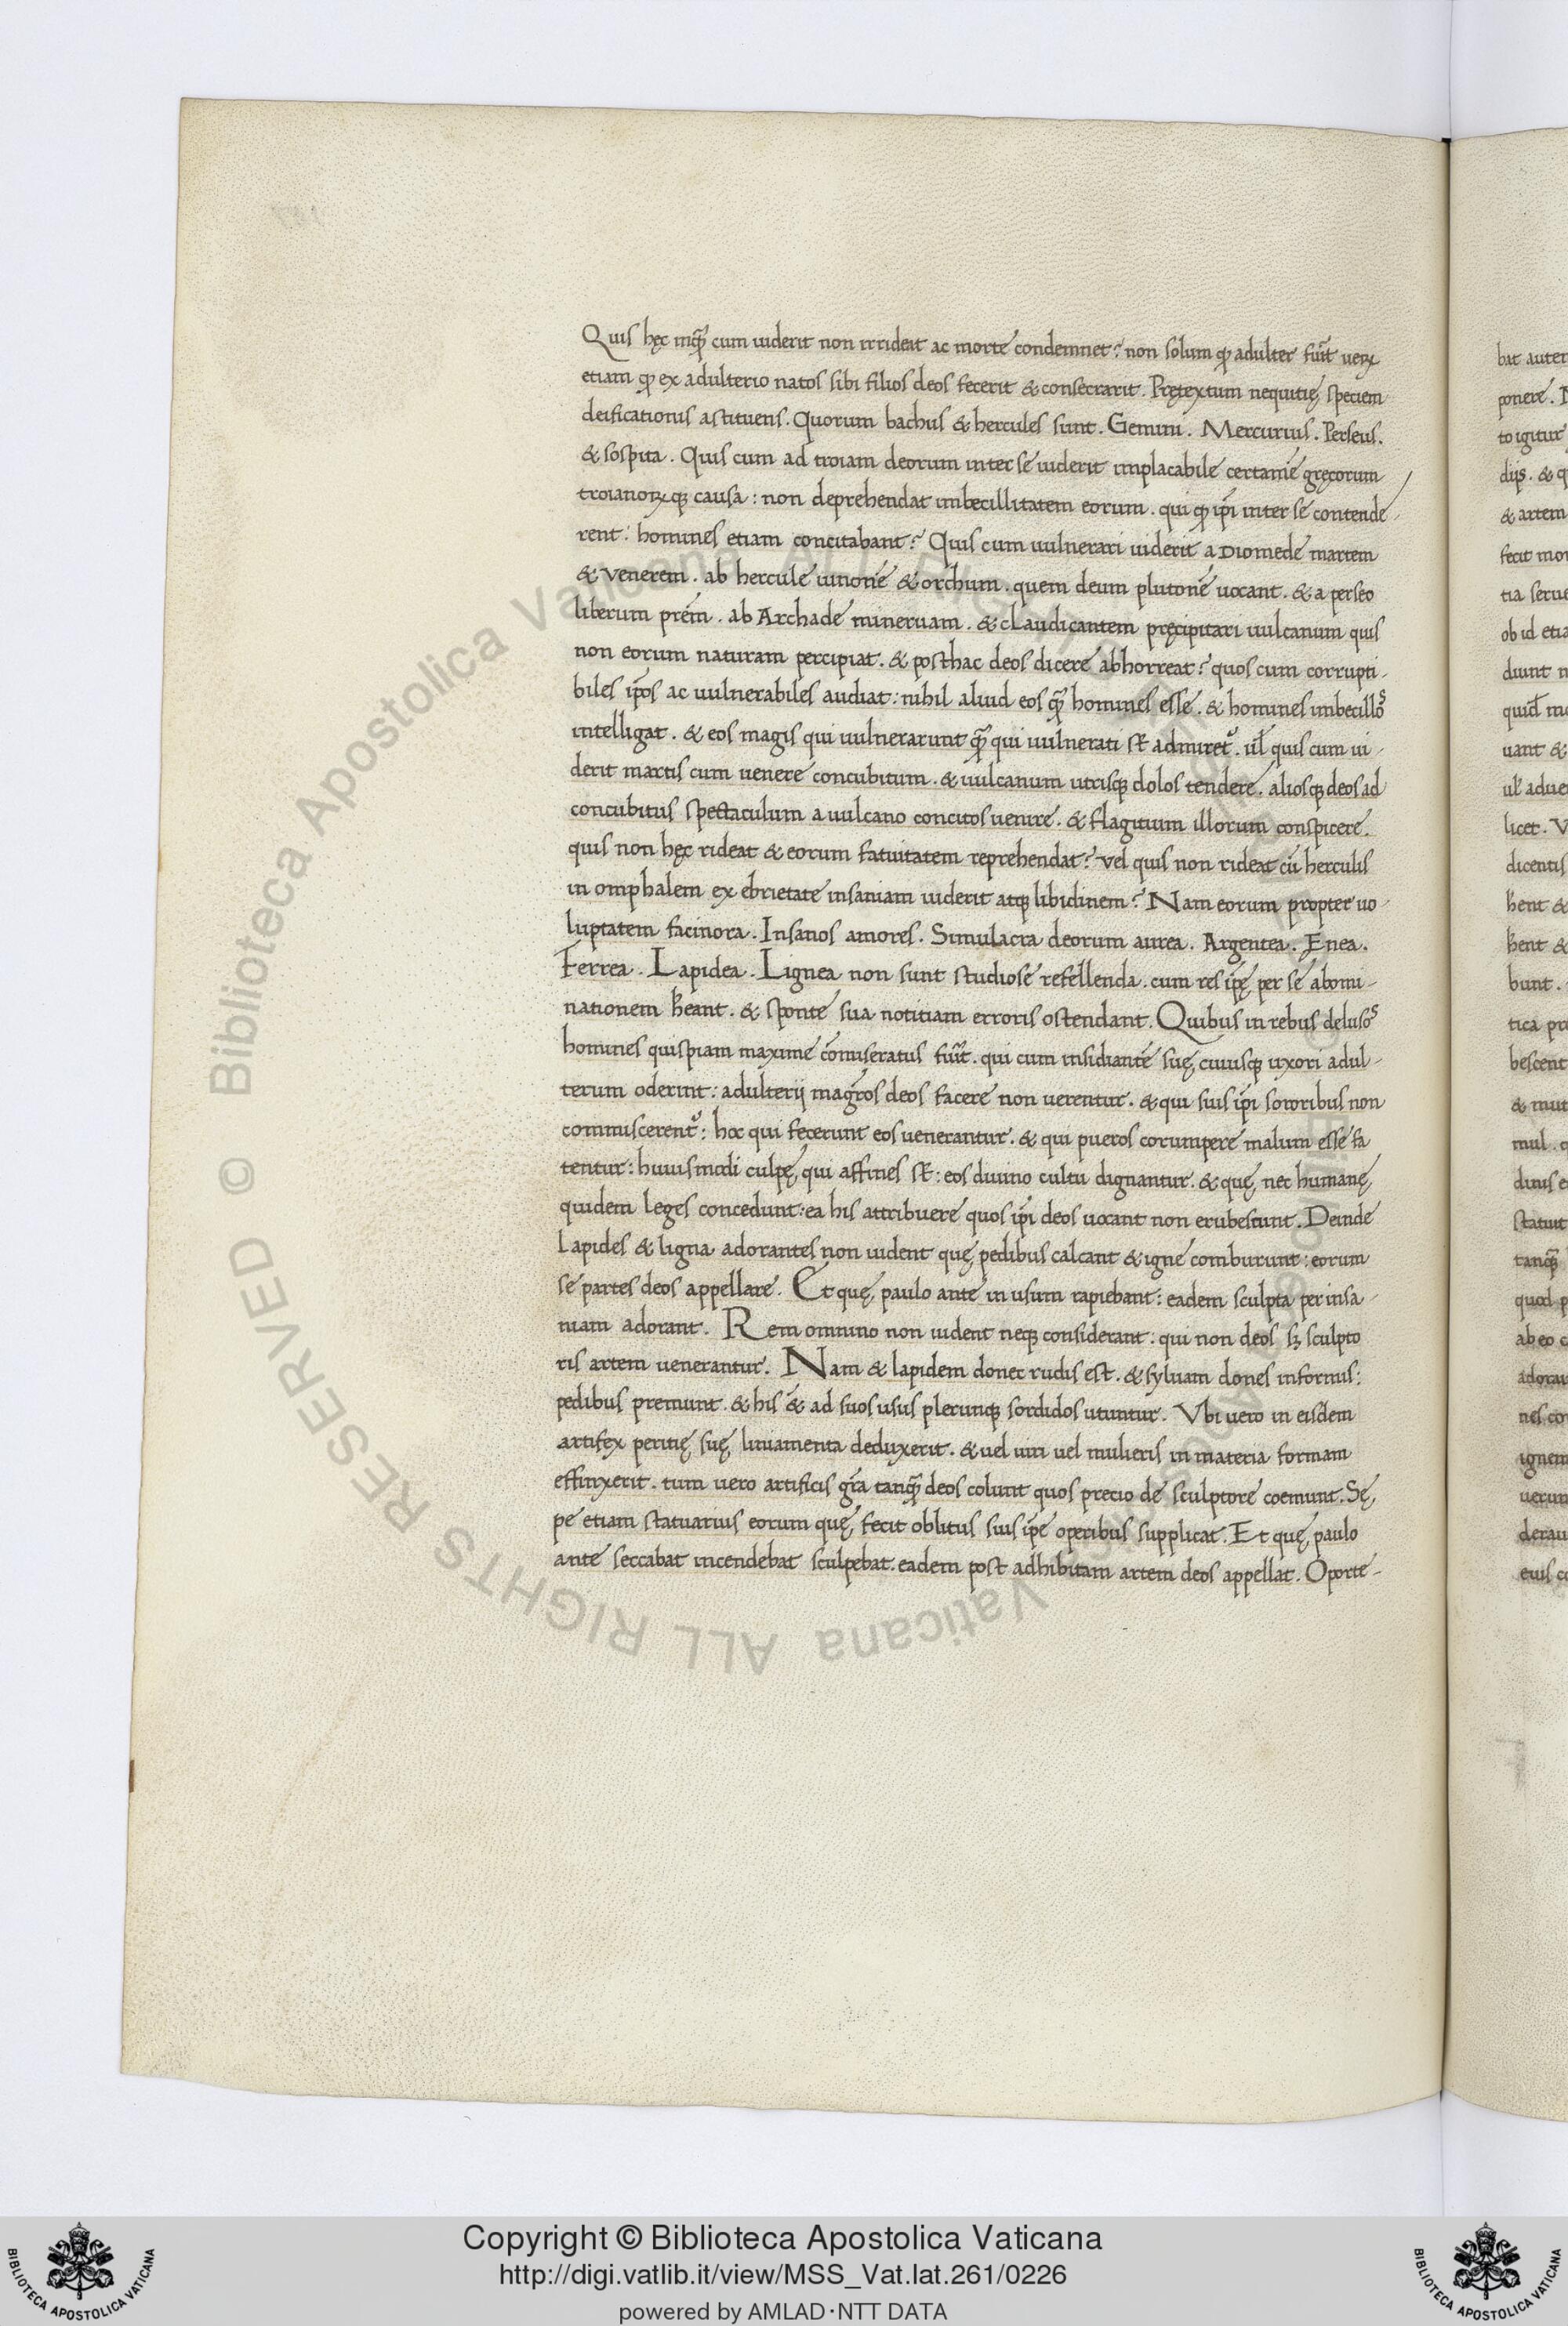 Quis hęc inqͣ cum uiderit non irrideat ac morte condemnet? non solum ꝙ adulter fuit̃ ueꝝ
etiam ꝙ ex adulterio natos sibi filios deos fecerit & consecrarit. Prętextum nequitię speciem
deificationis astituens. Quorum bachus & hercules sunt. Gemini. Mercurius. Perseus.
& sospita. Quis cum ad troiam deorum inter se uiderit implacabile certame gręcorum
troianoꝝqꝫ causa: non deprehendat imbecillitatem eorum. qui ꝙ ip̃i inter se contende-
rent: homines etiam concitabant? Quis cum uulnerari uiderit a Diomede martem
& venerem. ab hercule iunone & orchum. quem deum plutone uocant. & a perseo
liberum prẽm. ab Archade mineruam. & claudicantem pręcipitari uulcanum quis
non eorum naturam percipiat. & posthac deos dicere abhorreat? quos cum corrupti-
biles ip̃os ac uulnerabiles audiat: nihil aliud eos qͣ̃ homines esse. & homines imbecillos
intelligat. & eos magis qui uulnerarunt qͣ̃ qui uulnerati st̃ admiret᷑. ul̃ quis cum ui-
derit martis cum uenere concubitum. & uulcanum utrisqꝫ dolos tendere. aliosqꝫ deos ad
concubitus spectaculum a uulcano concitos uenire. & flagitium illorum conspicere.
quis non hęc rideat & eorum fatuitatem reprehendat? vel quis non rideat cũ herculis
in omphalem ex ebrietate insaniam uiderit atqꝫ libidinem? Nam eorum propter uo-
luptatem facinora. Insanos amores. Simulacra deorum aurea. Argentea. Enea.
Ferrea. Lapidea. Lignea non sunt studiose refellenda. cum res ip̃ę per se abomi-
nationem hẽant. & sponte sua notitiam erroris ostendant. Quibus in rebus delusos
homines quispiam maxime cõmiseratus fuit̃. qui cum insidiante suę cuiusqꝫ uxori adul-
terum oderint: adulterij mag̃ros deos facere non uerentur. & qui suis ip̃i sororibus non
commiscerent᷑: hoc qui fecerunt eos uenerantur. & qui pueros corumpere malum esse fa
tentur: huiusmodi culpę qui affines st̃: eos diuino cultu dignantur. & quę nec humanę
quidem leges concedunt: ea his attribuere quos ip̃i deos uocant non erubescunt. Deinde
Lapides & ligna adorantes non uident quę pedibus calcant & igne comburunt: eorum
se partes deos appellare. Et quę paulo ante in usum rapiebant: eadem sculpta per insa-
niam adorant. Rem omnino non uident neqꝫ considerant: qui non deos sꝫ sculpto
ris artem uenerantur. Nam & lapidem donec rudis est. & syluam dones informis:
pedibus premunt. & his & ad suos usus plerunqꝫ sordidos utuntur. Vbi uero in eisdem
artifex peritię suę liniamenta deduxerit. & uel uiri uel mulieris in materia formam
effinxerit. tum uero artificis gr̃a tanqͣ̃ deos colunt quos precio de sculptore coemunt. Sę
pe etiam statuarius eorum quę fecit oblitus suis ip̃e operibus supplicat. Et quę paulo
ante seccabat incendebat sculpebat. eadem post adhibitam artem deos appellat. Oporte-
Copyright © Biblioteca Apostolica Vaticana
http://digi.vatlib.it/view/MSS_Vat.lat.261/0226
powered by AMLAD·NTT DATA